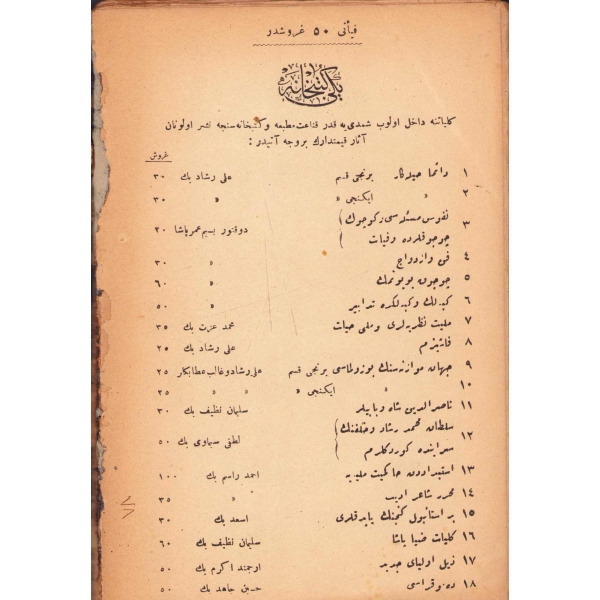 فیأتی ٥٠ غروشدر
یکی کتبخانه
کلیاتنه داخل اولوب شمدی‌یه قدر قناعت مطبعه وکتبخانه‌سنجه نشر اولونان
آثار قیمتدارك بروجه آتیدر :
غروش
١ دائما جیدکار برنجی قسم علی رشاد بك ٣٠
٢ » ایکنجی » » ٣٠
٣ نفوس مسئله‌سی : کوچوك چوجوقلرده وفیات دوقتور بسیم عمر پاشا ٢٠
٤ فن وازدواج » ٣٠
٥ چوجوق بویوتمك » ٦٠
٦ کبه‌لك وکبه‌لکده تدابیر » ٥٠
٧ ملیت نظریه‌لری وملی حیات محمد عزت بك ٣٥
٨ فاشیزم علی رشاد بك ٢٥
٩ جهان موازنه‌سنك بوزولماسی برنجی قسم علی رشاد وغالب عطا بکلر ٢٥
١٠ » ایکنجی » » ٢٥
١١ ناصرالدین شاه وبابیلر سلیمان نظیف بك ٣٠
١٢ سلطان محمد رشاد وخلفنك سراینده کوردکلرم لطفی سیماوی بك ٥٠
١٣ استبداددن حاکمیت ملیه‌یه احمد راسم بك ١٠٠
١٤ محرر شاعر ادیب » ٣٥
١٥ بر استانبول کنجنك اسعد بك ٣٠
١٦ کلیات ضیا پاشا سلیمان نظیف بك ٦٠
١٧ ذیل اولیای جدید ارجمند اکرم بك ٥٠
١٨ حسین جاهد بك ٥٠